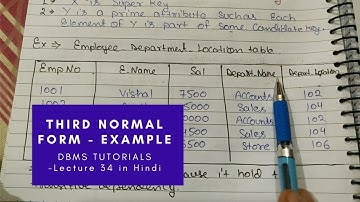 1→ "X" is super key
2→ Y is a prime attribute such as Each
element of Y is part of some Candidate key.
Ex → Employee Department Location table.
Emp No E.Name Sal Depart.Name Depart.Location
1001 Vishal 7500 Accounts 102
Sales 104
Accounts 102
Sales 104
Store 106
THIRD NORMAL
FORM - EXAMPLE
DBMS TUTORIALS
-Lecture 34 in Hindi
cause it hold
dependency